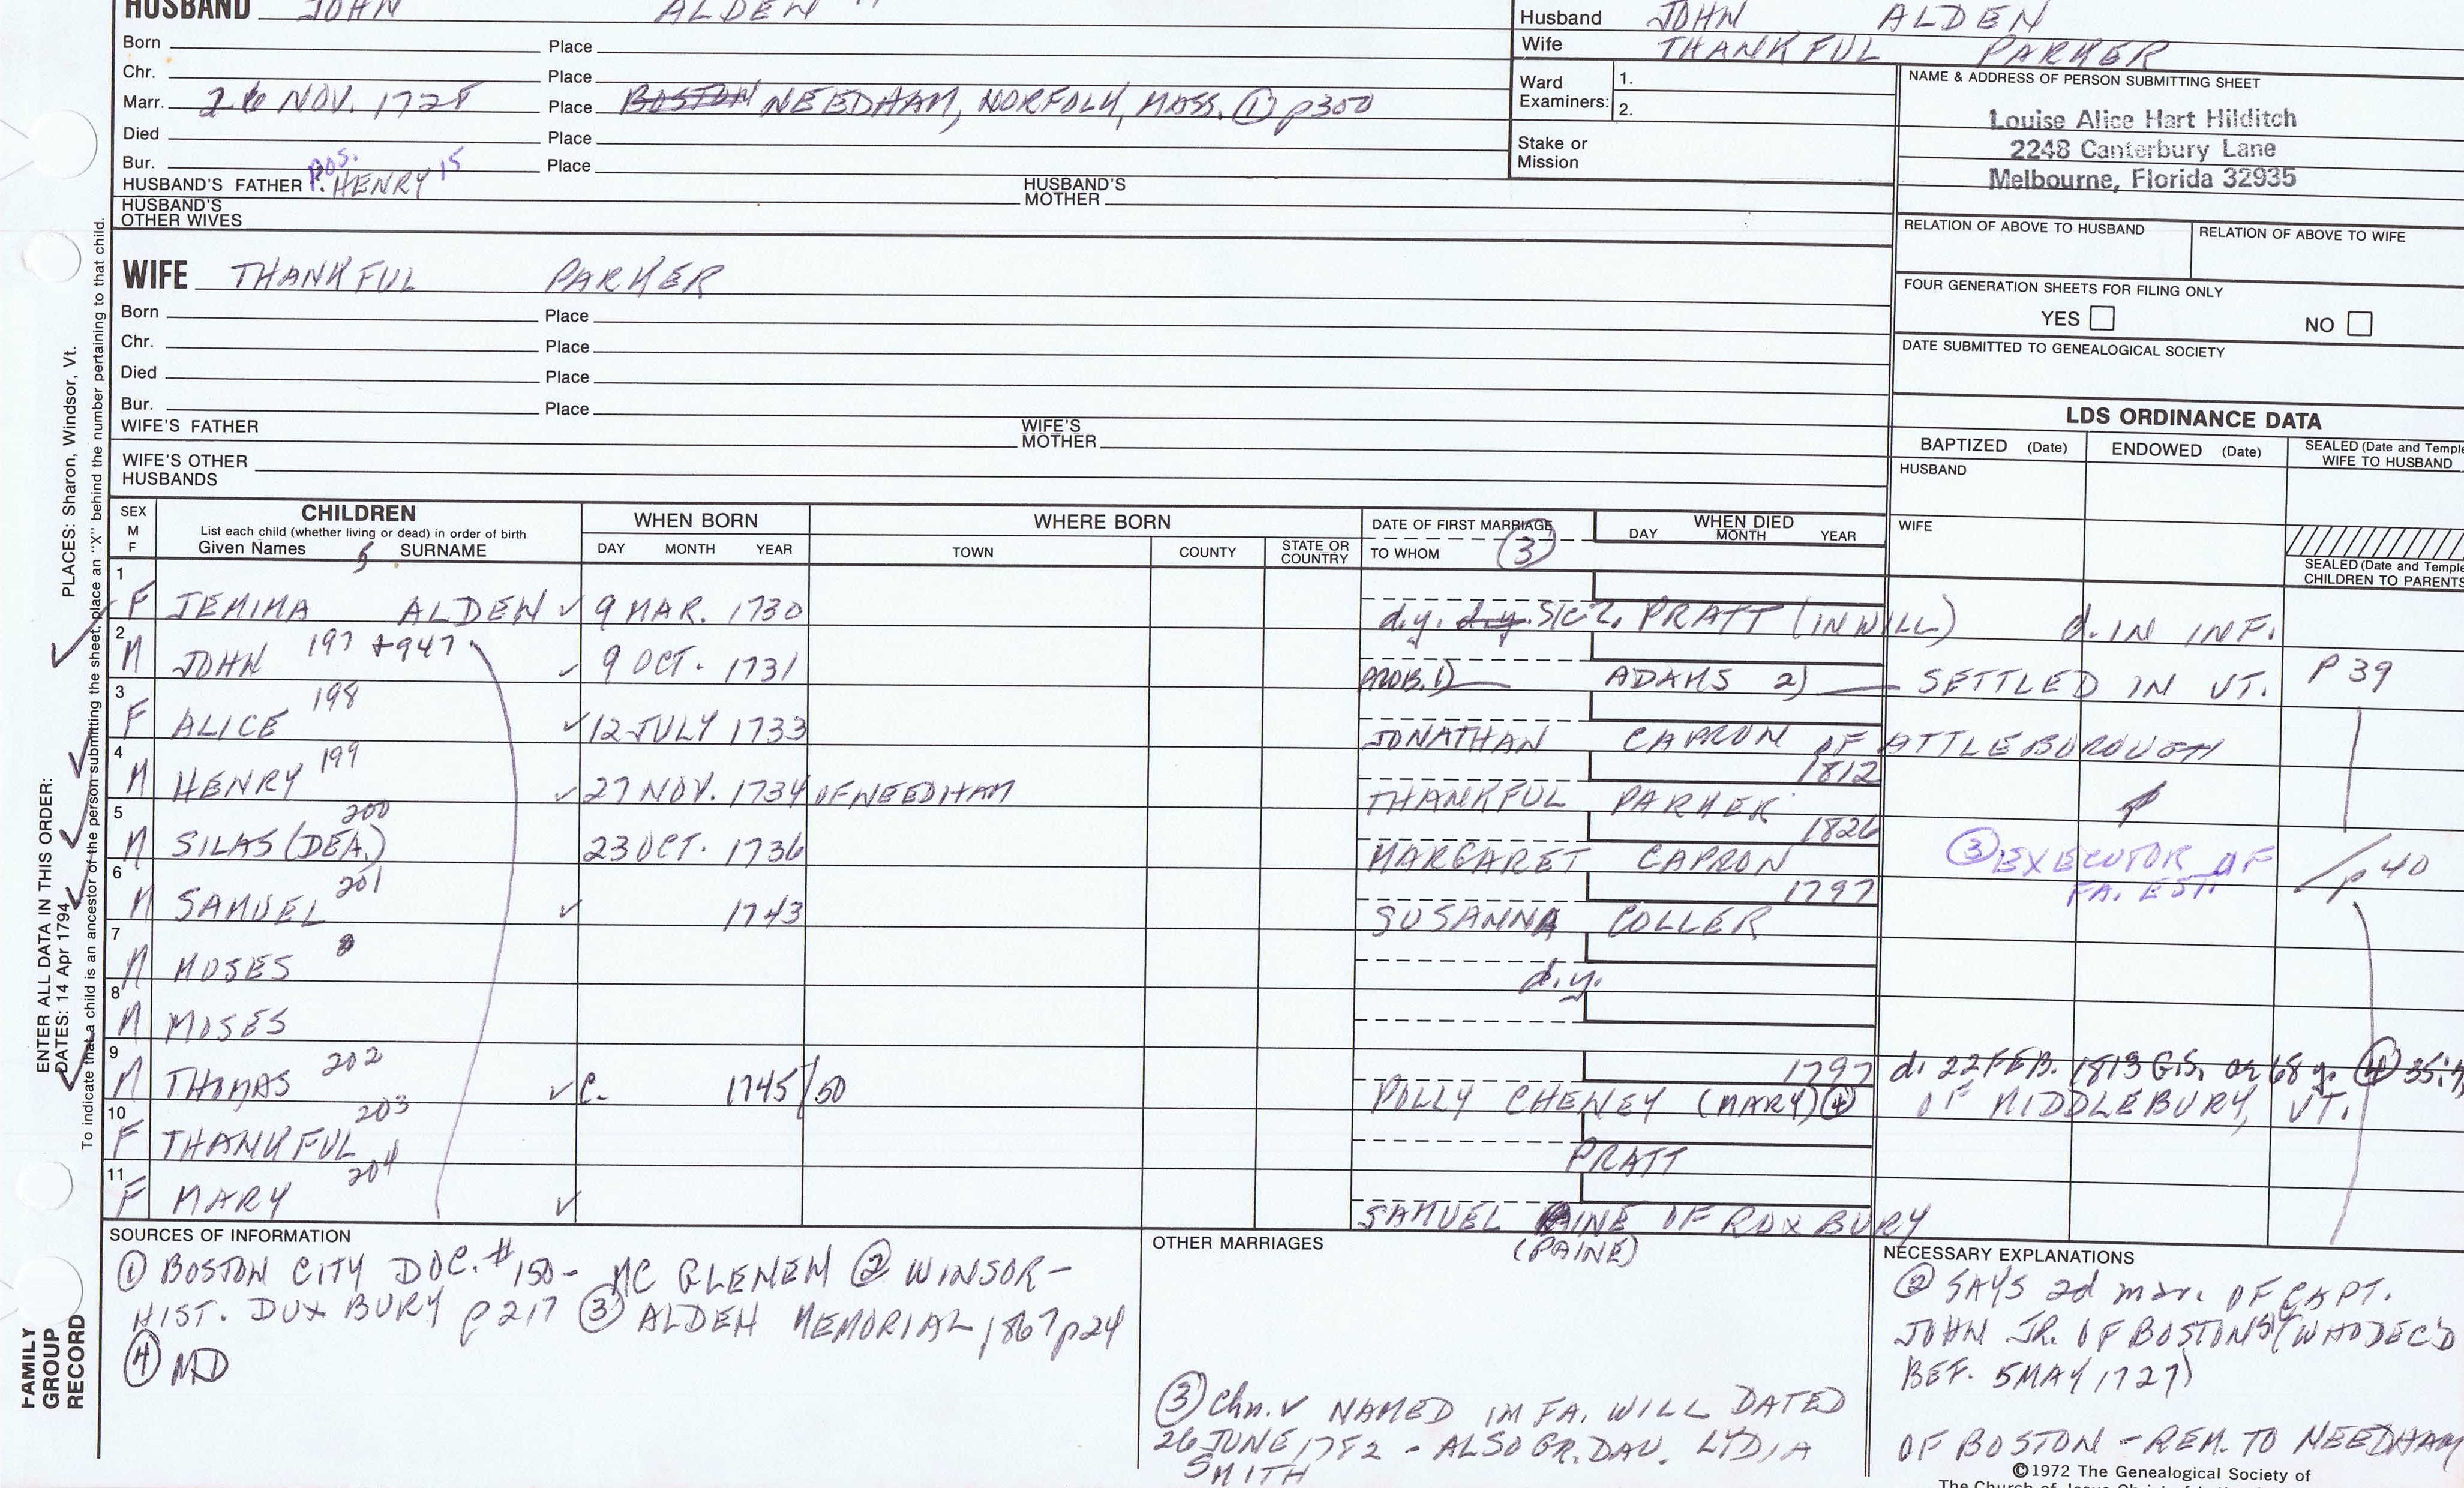 HUSBAND JOHN ALDEN
Born Place
Chr. Place
Marr. 26 NOV. 1728 Place BOSTON NEEDHAM, NORFOLK, MASS. ① p300
Died Place
Bur. Place
pos.
HUSBAND'S FATHER P. HENRY 15 HUSBAND'S MOTHER
HUSBAND'S OTHER WIVES
Husband JOHN ALDEN
Wife THANKFUL PARKER
Ward Examiners: 1.
2.
Stake or Mission
NAME & ADDRESS OF PERSON SUBMITTING SHEET
Louise Alice Hart Hilditch
2248 Canterbury Lane
Melbourne, Florida 32935
RELATION OF ABOVE TO HUSBAND RELATION OF ABOVE TO WIFE
FOUR GENERATION SHEETS FOR FILING ONLY
YES NO
DATE SUBMITTED TO GENEALOGICAL SOCIETY
WIFE THANKFUL PARKER
Born Place
Chr. Place
Died Place
Bur. Place
WIFE'S FATHER WIFE'S MOTHER
WIFE'S OTHER HUSBANDS
LDS ORDINANCE DATA
BAPTIZED (Date) ENDOWED (Date) SEALED (Date and Temple
WIFE TO HUSBAND
HUSBAND
WIFE
SEALED (Date and Temple
CHILDREN TO PARENTS
SEX M F CHILDREN WHEN BORN WHERE BORN DATE OF FIRST MARRIAGE WHEN DIED
List each child (whether living or dead) in order of birth
Given Names SURNAME DAY MONTH YEAR TOWN COUNTY STATE OR COUNTRY TO WHOM ③ DAY MONTH YEAR
1 F JEMIMA ALDEN ✓ 9 MAR. 1730 d.y. d.y. PRATT (IN WILL) d. IN INF.
2 M JOHN 197 +947 ✓ 9 OCT. 1731 PROB. 1) ADAMS 2) SETTLED IN VT. P 39
3 F ALICE 198 ✓ 12 JULY 1733 JONATHAN CAPRON OF ATTLEBOROUGH
4 M HENRY 199 ✓ 27 NOV. 1734 OF NEEDHAM 1812 THANKFUL PARKER
5 M SILAS (DEA.) 200 23 OCT. 1736 1826 MARGARET CAPRON ③ EXECUTOR OF FA. EST. p 40
6 M SAMUEL 201 ✓ 1743 1797 SUSANNA COLLER
7 M MOSES d.y.
8 M MOSES
9 M THOMAS 202 ✓ C. 1745/50 1797 POLLY CHENEY (MARY) ④ d. 22 FEB. 1813 G.S. 68 y. ④ 35:
OF MIDDLEBURY, VT.
10 F THANKFUL 203 PRATT
11 F MARY 204 ✓ SAMUEL PAINE OF ROXBURY
(PAINE)
SOURCES OF INFORMATION
① BOSTON CITY DOC. #150 - MC GLENEN ② WINSOR -
HIST. DUXBURY p 217 ③ ALDEN MEMORIAL 1867 p24
④ MD
OTHER MARRIAGES
③ Chn. ✓ NAMED IN FA. WILL DATED
26 JUNE 1782 - ALSO GR. DAU. LYDIA
SMITH
NECESSARY EXPLANATIONS
② SAYS 2d mar. OF CAPT.
JOHN JR. OF BOSTON (WHO DEC'D
BEF. 5 MAY 1727)
OF BOSTON - REM. TO NEEDHAM
©1972 The Genealogical Society of
ENTER ALL DATA IN THIS ORDER:
DATES: 14 Apr 1794
PLACES: Sharon, Windsor, Vt.
To indicate that a child is an ancestor of the person submitting the sheet, place an "X" behind the number pertaining to that child.
FAMILY
GROUP
RECORD